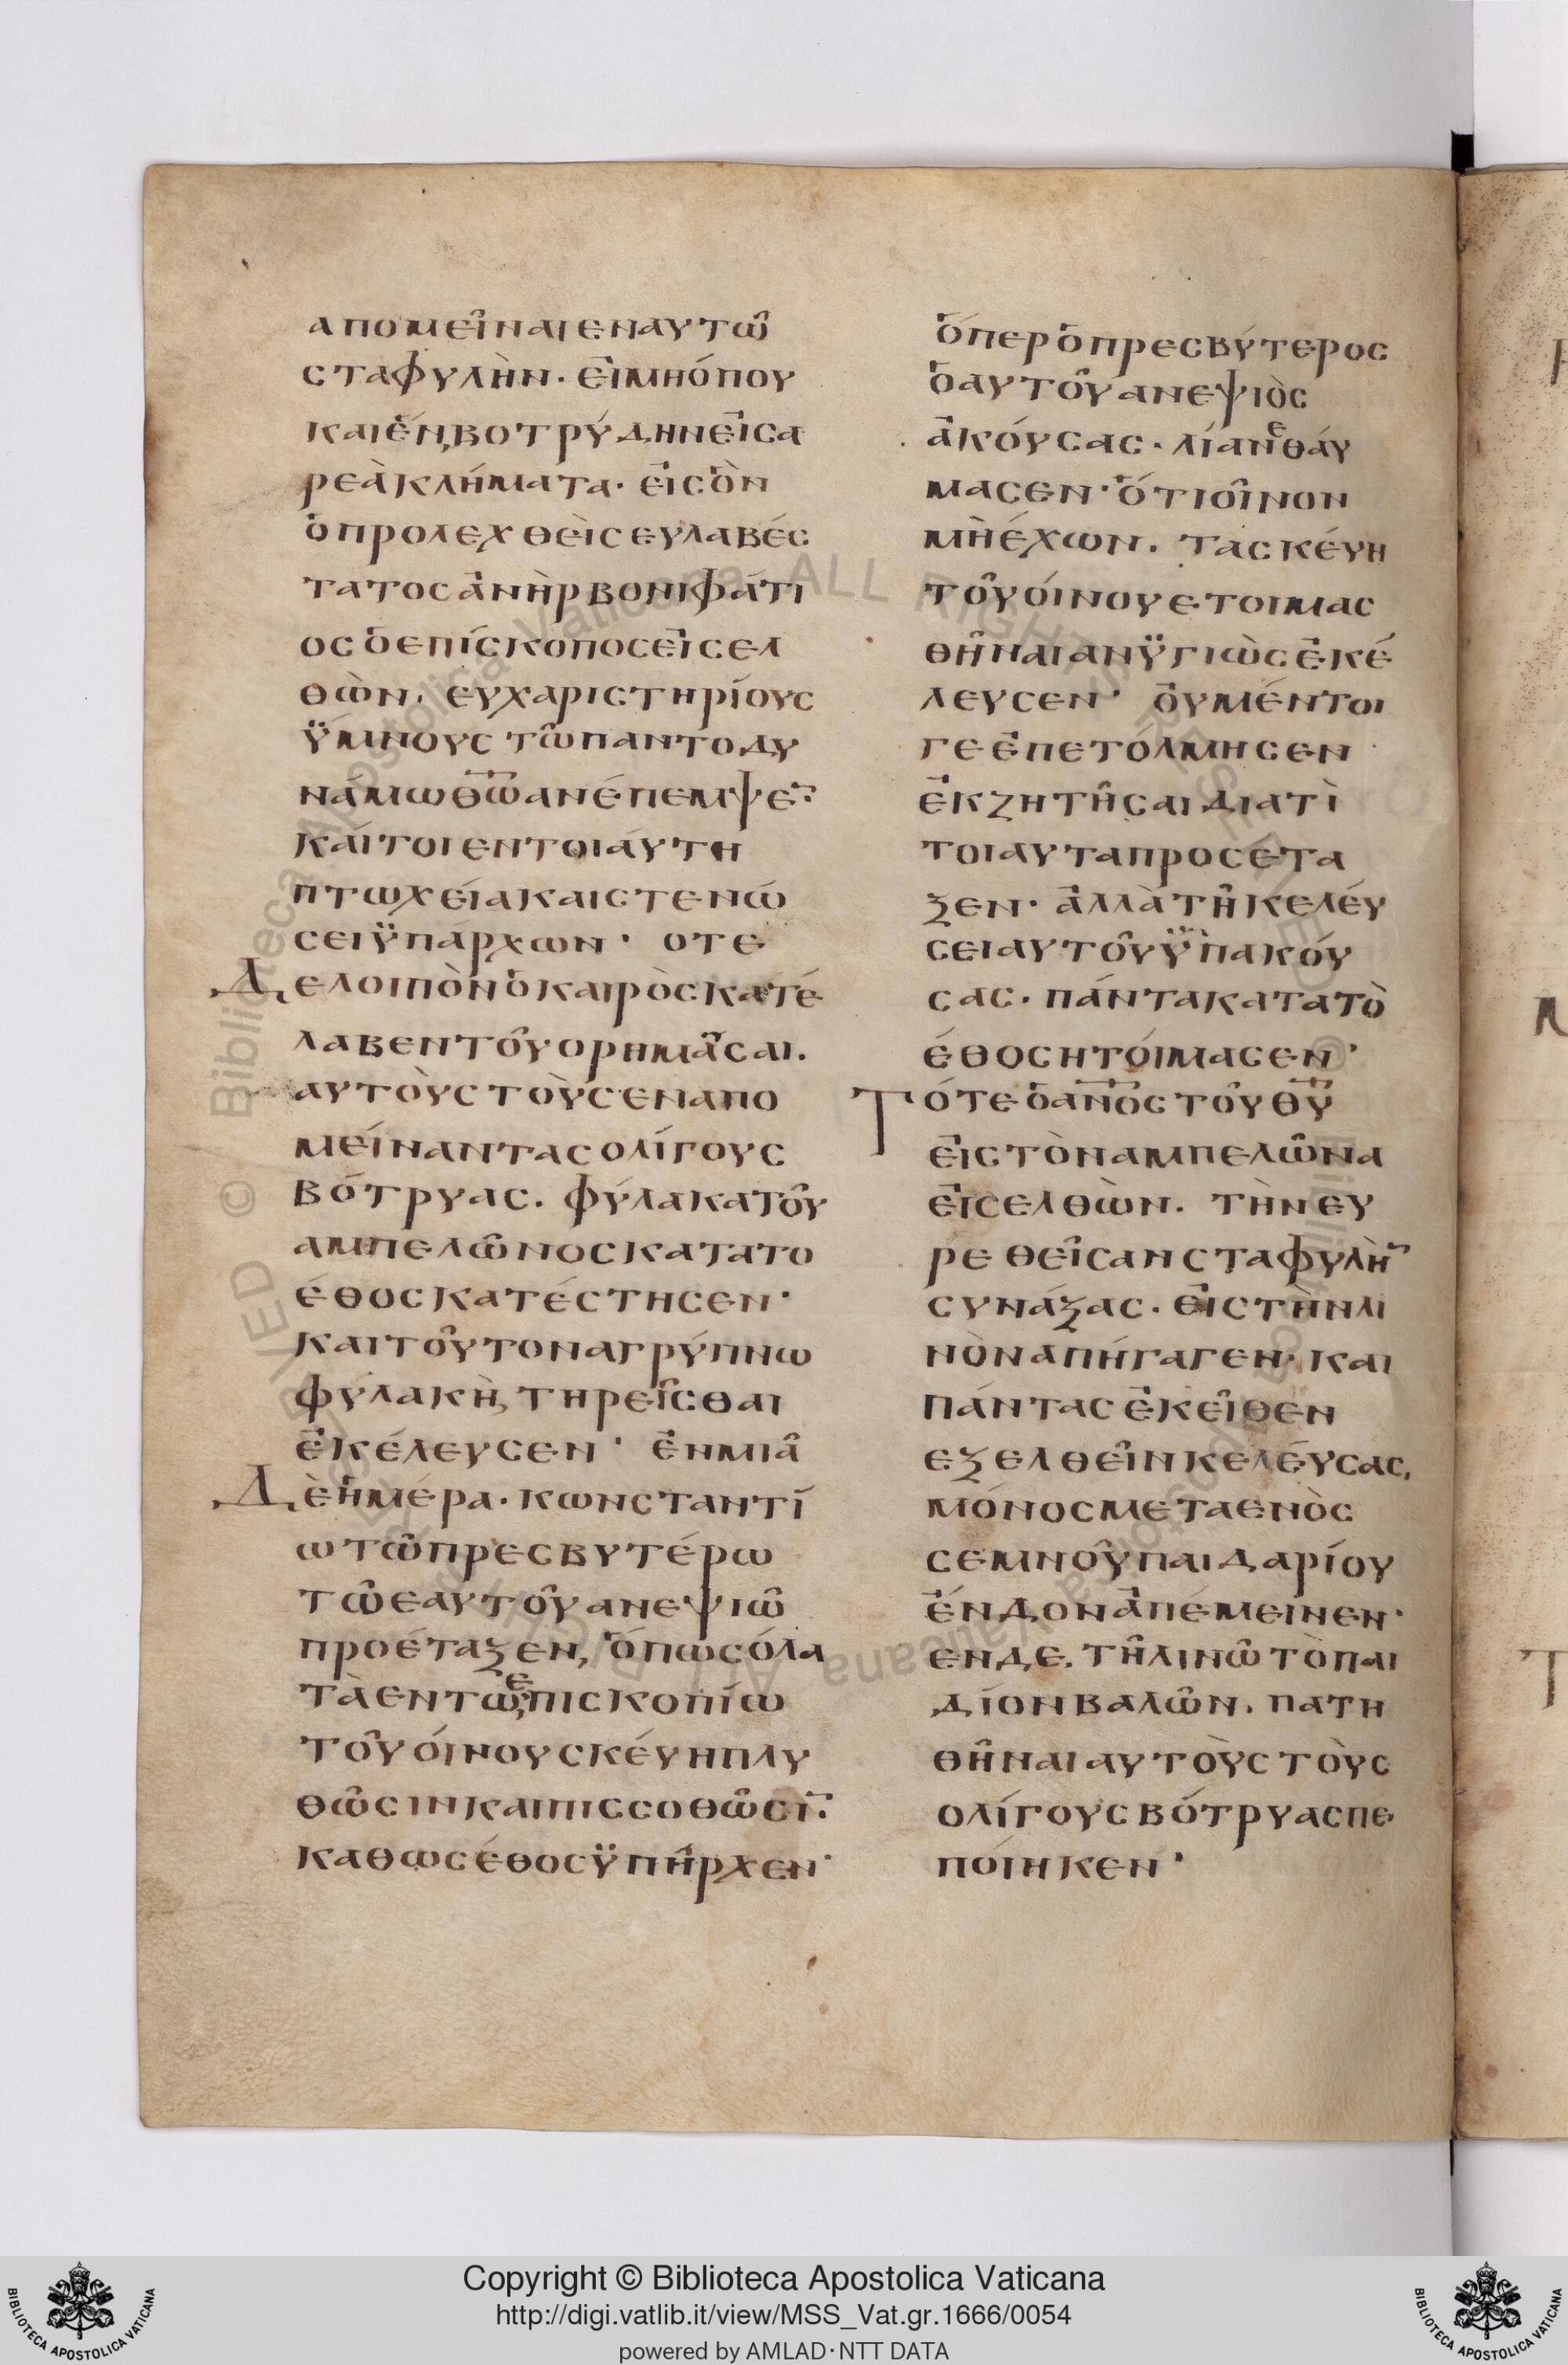 απομεῖναι εν αυτῶ
σταφυλὴν· εἰ μὴ όπου
και ἕν, βοτρύδην εἰς α
ρεὰ κλήματα· εἰς ὃν
ὁ προλεχθεὶς ευλαβές
τατος ἀνὴρ βονιφάτι
ος ὁ επίσκοπος εἰσελ
θὼν. ευχαριστηρίους
ΰμνους τῶ παντοδυ
νάμω θ̅ω̅ ανέπεμψε̅·
καίτοι εν τοιάυτη
πτωχεία και στενώ
σει ϋπάρχων· οτε
Δε λοιπὸν ὁ καιρὸς κατέ
λαβεν τοῦ ορημᾶσαι.
αυτοὺς τοὺς εναπο
μείναντας ολίγους
βότρυας. φύλακα τοῦ
αμπελῶνος κατα το
έθος κατέστησεν·
και τοῦτον αγρύπνω
φυλακὴ, τηρεῖσθαι
ἐκέλευσεν· ἐν μιᾶ
Δὲ ἡμέρα. κωνσταντί
ω τῶ πρεσβυτέρω
τῶ εαυτοῦ ανεψιῶ
προέταξεν, ὅπως όλα
τὰ εν τῶ επισκοπίω
τοῦ όινου σκέυη πλυ
θῶσιν και πισσοθῶσι̅·
καθως έθος ϋπῆρχεν·
ὅπερ ὁ πρεσβύτερος
ὁ αυτοῦ ανεψιὸς
ἀκούσας· λίαν εθάυ
μασεν· ὅτι οἶνον
μὴ έχων. τα σκέυη
τοῦ όινου ετοιμας
θῆναι ανϋγιὼς ἐκέ
λευσεν· ὀυ μέντοι
γε ἐπετόλμησεν
ἐκζητῆσαι διατὶ
τοιαυτα προσέτα
ξεν· ἀλλὰ τῆ κελέυ
σει αυτοῦ ῢπακού
σας. πάντα κατα τὸ
έθος ητόιμασεν·
Τότε ὁ α̅ν̅ο̅ς τοῦ θ̅υ̅
εἰς τὸν αμπελῶνα
εἰσελθὼν. τὴν ευ
ρεθεῖσαν σταφυλὴ̅
συνάξας. εἰς τὴν λι
νὸν απήγαγεν· και
πάντας ἐκεῖθεν
εξελθεῖν κελέυσας,
μόνος μετα ενὸς
σεμνοῦ παιδαρίου
ἔνδον ἀπέμεινεν·
εν δε. τῆ λινῶ τὸ παι
δίον βαλῶν. πατη
θῆναι αυτοὺς τοὺς
ολίγους βότρυας πε
ποίηκεν·
Copyright © Biblioteca Apostolica Vaticana
http://digi.vatlib.it/view/MSS_Vat.gr.1666/0054
powered by AMLAD·NTT DATA
BIBLIOTECA APOSTOLICA VATICANA
BIBLIOTECA APOSTOLICA VATICANA